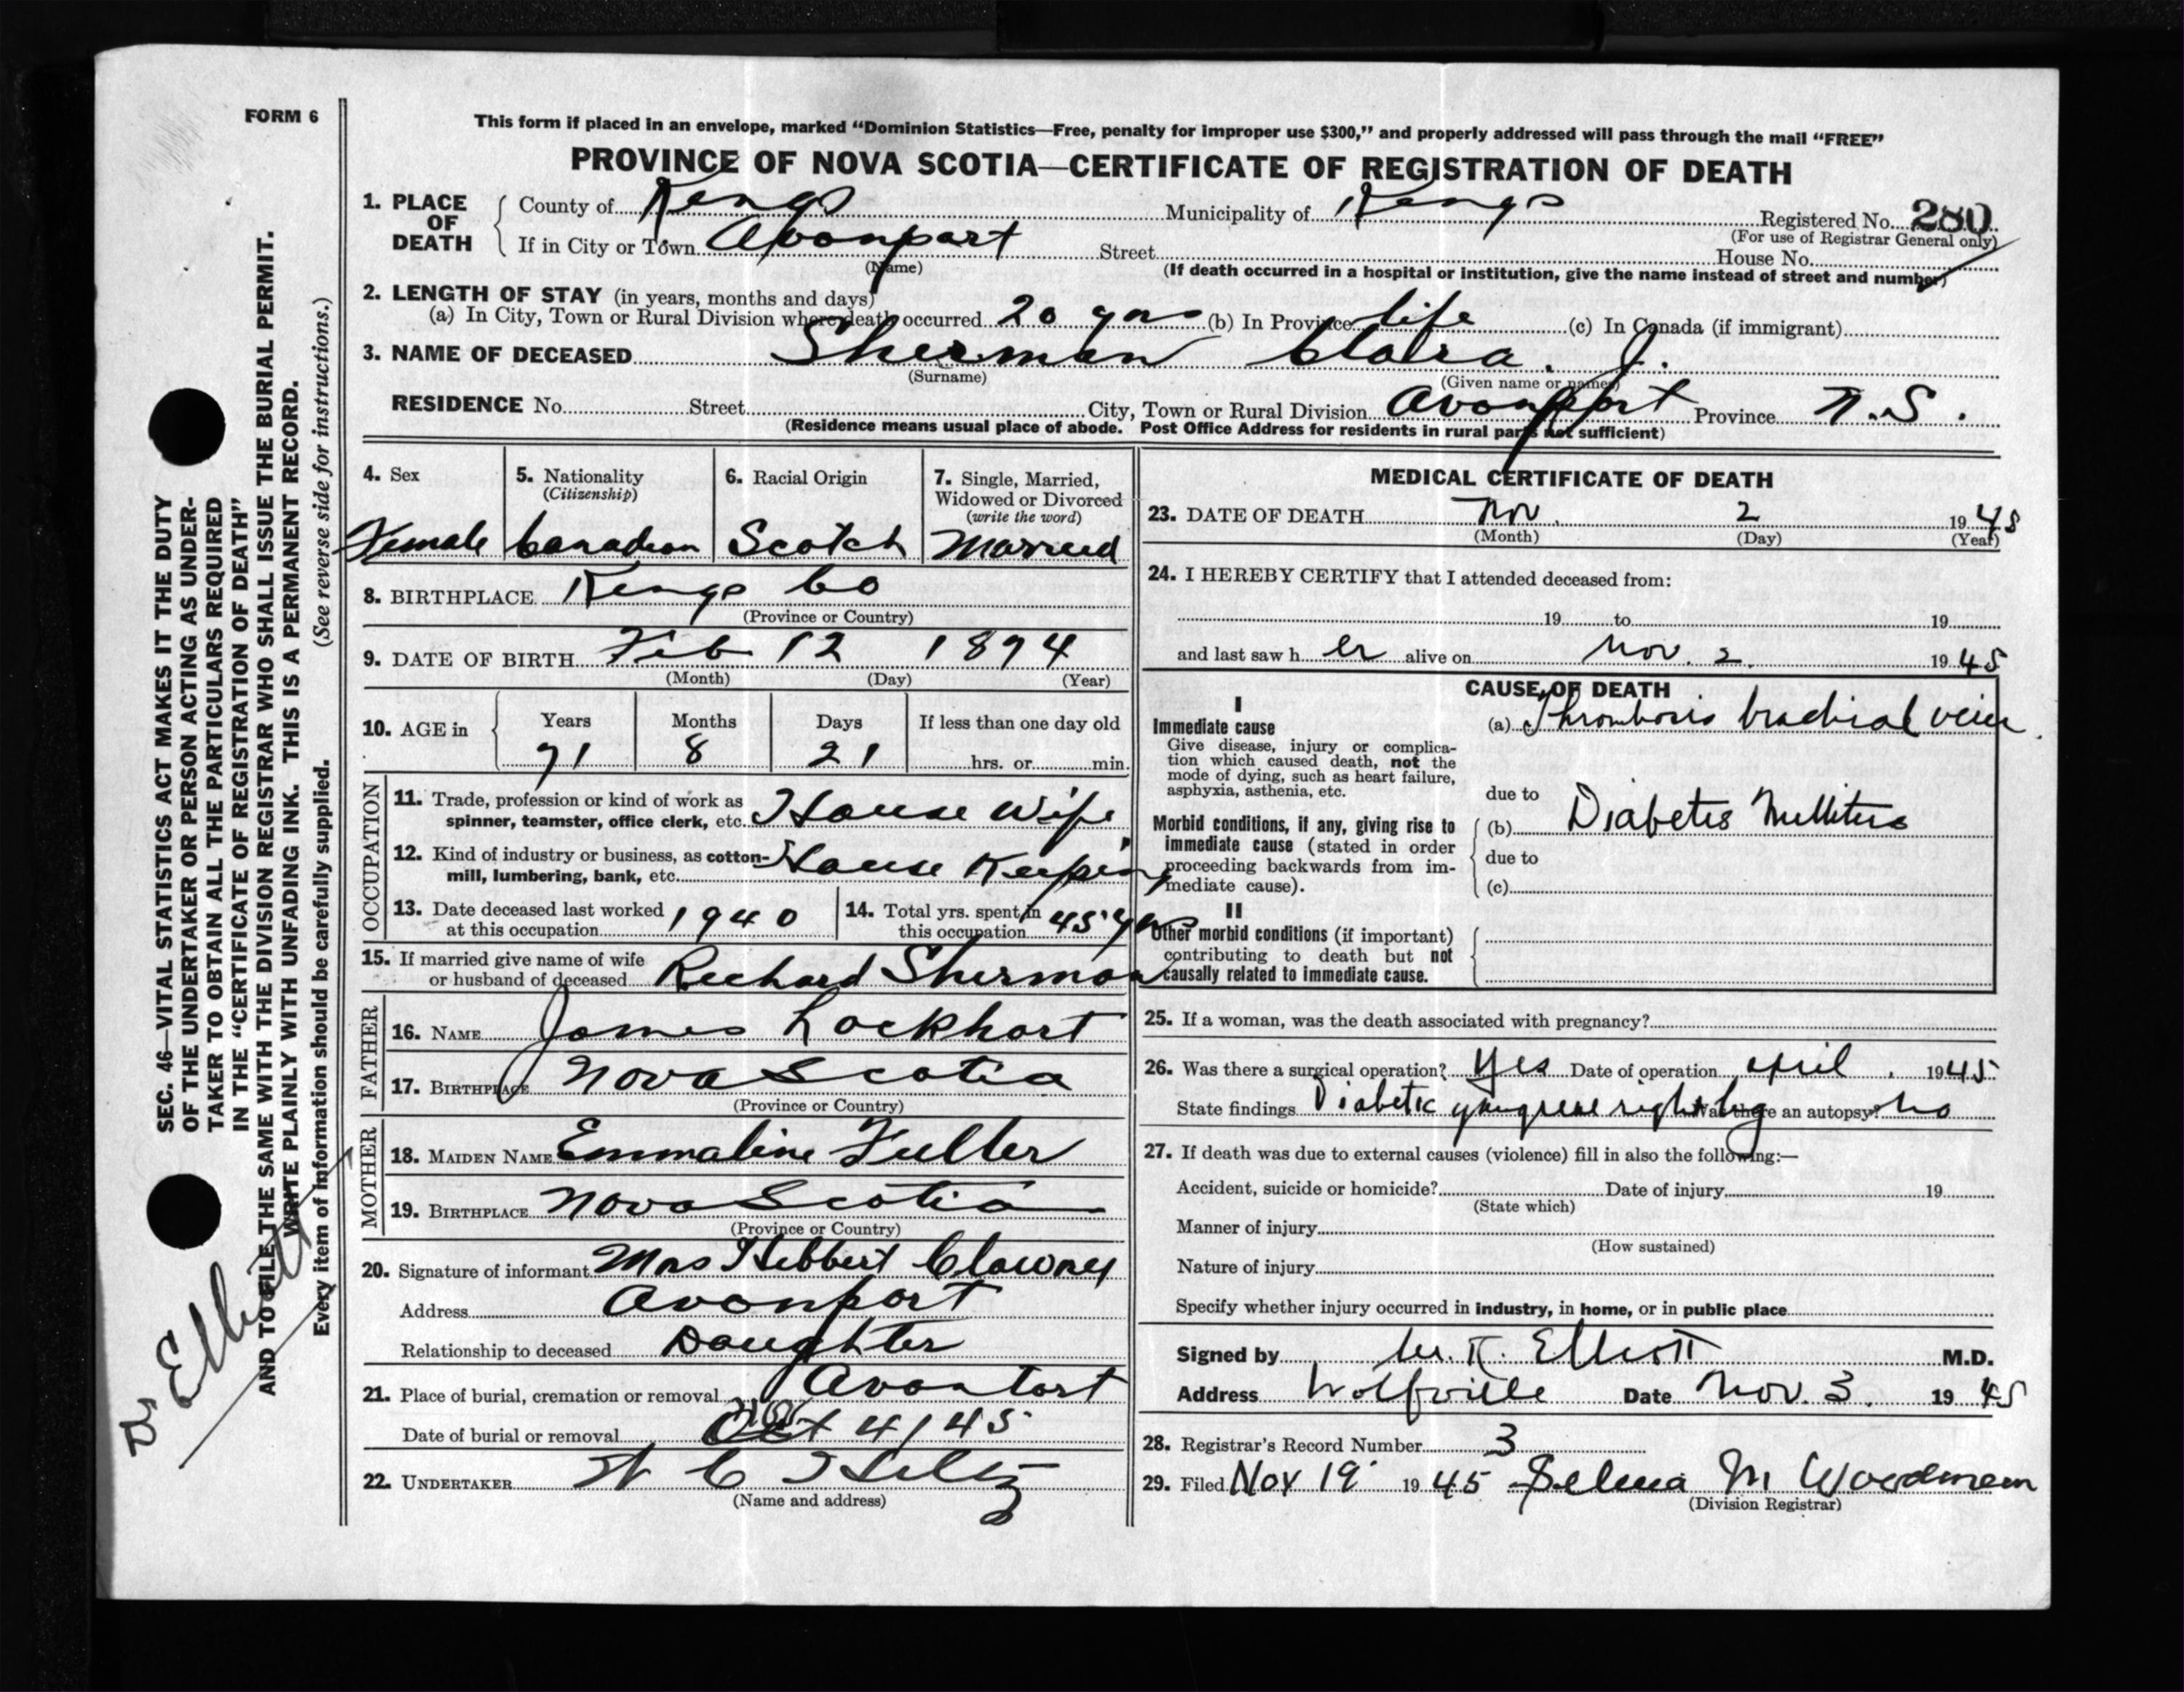 FORM 6
This form if placed in an envelope, marked "Dominion Statistics—Free, penalty for improper use $300," and properly addressed will pass through the mail "FREE"
PROVINCE OF NOVA SCOTIA—CERTIFICATE OF REGISTRATION OF DEATH
1. PLACE OF DEATH County of Kings Municipality of Kings Registered No. 280
(For use of Registrar General only)
If in City or Town Avonport Street House No.
(Name) (If death occurred in a hospital or institution, give the name instead of street and number)
2. LENGTH OF STAY (in years, months and days)
(a) In City, Town or Rural Division where death occurred 20 yrs (b) In Province life (c) In Canada (if immigrant)
3. NAME OF DECEASED Sherman Clara. J.
(Surname) (Given name or names)
RESIDENCE No. Street City, Town or Rural Division Avonport Province N.S.
(Residence means usual place of abode. Post Office Address for residents in rural parts not sufficient)
4. Sex Female
5. Nationality (Citizenship) Canadian
6. Racial Origin Scotch
7. Single, Married, Widowed or Divorced (write the word) Married
8. BIRTHPLACE Kings Co
(Province or Country)
9. DATE OF BIRTH Feb 12 1874
(Month) (Day) (Year)
10. AGE in Years Months Days If less than one day old
71 8 21 hrs. or min.
OCCUPATION
11. Trade, profession or kind of work as spinner, teamster, office clerk, etc. House Wife
12. Kind of industry or business, as cotton-mill, lumbering, bank, etc. House Keeping
13. Date deceased last worked at this occupation 1940
14. Total yrs. spent in this occupation 45 yrs
15. If married give name of wife or husband of deceased Richard Sherman
FATHER
16. NAME James Lockhart
17. BIRTHPLACE Nova Scotia
(Province or Country)
MOTHER
18. MAIDEN NAME Emmaline Fuller
19. BIRTHPLACE Nova Scotia
(Province or Country)
20. Signature of informant Mrs Hebbert Clowrey
Address Avonport
Relationship to deceased Daughter
21. Place of burial, cremation or removal Avonport
Date of burial or removal 4/45
22. UNDERTAKER
(Name and address)
MEDICAL CERTIFICATE OF DEATH
23. DATE OF DEATH Nov. 2 1945
(Month) (Day) (Year)
24. I HEREBY CERTIFY that I attended deceased from:
19 to 19
and last saw h er alive on Nov. 2. 1945
CAUSE OF DEATH
I
Immediate cause
Give disease, injury or complica-
tion which caused death, not the
mode of dying, such as heart failure,
asphyxia, asthenia, etc.
(a) Thrombosis brachial vein
due to
Morbid conditions, if any, giving rise to
immediate cause (stated in order
proceeding backwards from im-
mediate cause).
(b) Diabetes Mellitus
due to
(c)
II
Other morbid conditions (if important)
contributing to death but not
causally related to immediate cause.
25. If a woman, was the death associated with pregnancy?
26. Was there a surgical operation? Yes Date of operation April. 1945
State findings Diabetic gangrene right leg Was there an autopsy? No
27. If death was due to external causes (violence) fill in also the following:—
Accident, suicide or homicide? Date of injury 19
(State which)
Manner of injury
(How sustained)
Nature of injury
Specify whether injury occurred in industry, in home, or in public place
Signed by Elliott M.D.
Address Wolfville Date Nov. 3. 1945
28. Registrar's Record Number 3
29. Filed Nov 19 1945 Selma M Woodman
(Division Registrar)
SEC. 46—VITAL STATISTICS ACT MAKES IT THE DUTY
OF THE UNDERTAKER OR PERSON ACTING AS UNDER-
TAKER TO OBTAIN ALL THE PARTICULARS REQUIRED
IN THE "CERTIFICATE OF REGISTRATION OF DEATH"
AND TO FILE THE SAME WITH THE DIVISION REGISTRAR WHO SHALL ISSUE THE BURIAL PERMIT.
WRITE PLAINLY WITH UNFADING INK. THIS IS A PERMANENT RECORD.
Every item of information should be carefully supplied. (See reverse side for instructions.)
Dr Elliott